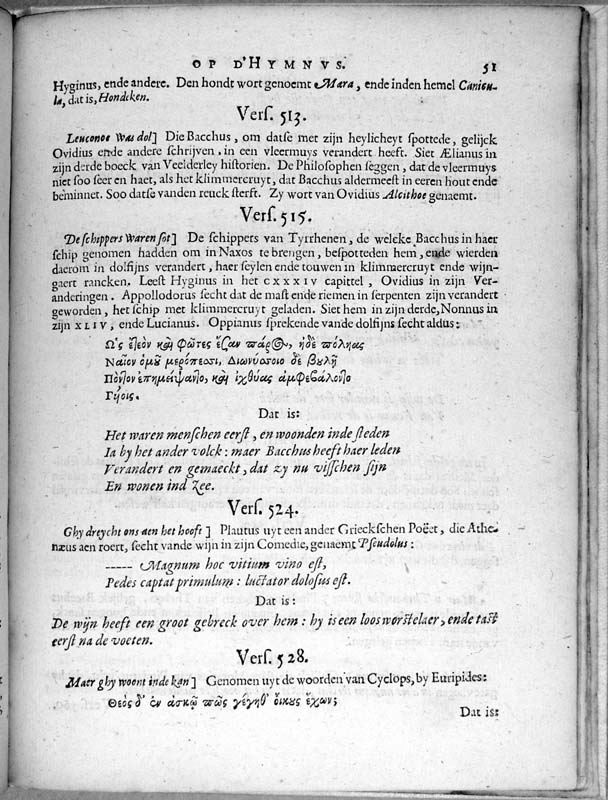 OP D'HYMNVS. 51
Hyginus, ende andere. Den hondt wort genoemt Mara, ende inden hemel Canicu-
la, dat is, Hondeken.
Vers. 513.
Leuconoe was dol] Die Bacchus, om datse met zijn heylicheyt spottede, gelijck
Ovidius ende andere schrijven, in een vleermuys verandert heeft. Siet Ælianus in
zijn derde boeck van Veelderley historien. De Philosophen seggen, dat de vleermuys
niet soo seer en haet, als het klimmercruyt, dat Bacchus aldermeest in eeren hout ende
beminnet. Soo datse vanden reuck sterft. Zy wort van Ovidius Alcithoe genaemt.
Vers. 515.
De schippers waren sot] De schippers van Tyrrhenen, de welcke Bacchus in haer
schip genomen hadden om in Naxos te brengen, bespotteden hem, ende wierden
daerom in dolfijns verandert, haer seylen ende touwen in klimmercruyt ende wijn-
gaert rancken. Leest Hyginus in het CXXXIV capittel, Ovidius in zijn Ver-
anderingen. Appollodorus secht dat de mast ende riemen in serpenten zijn verandert
geworden, het schip met klimmercruyt geladen. Siet hem in zijn derde, Nonnus in
zijn XLIV, ende Lucianus. Oppianus sprekende vande dolfijns secht aldus:
Ὡς ἐτεὸν καὶ φῶτες ἔσαν πάρος, ἠδὲ πόληας
Ναῖον ὁμοῦ μερόπεσσι, Διωνύσοιο δὲ βουλῇ
Πόντον ἐπημείψαντο, καὶ ἰχθύας ἀμφεβάλοντο
Γυίοις.
Dat is:
Het waren menschen eerst, en woonden inde steden
Ia by het ander volck: maer Bacchus heeft haer leden
Verandert en gemaeckt, dat zy nu visschen sijn
En wonen ind Zee.
Vers. 524.
Ghy dreycht ons aen het hooft] Plautus uyt een ander Grieckschen Poëet, die Athe-
næus aen roert, secht vande wijn in zijn Comedie, genaemt Pseudolus:
----- Magnum hoc vitium vino est,
Pedes captat primulum: luctator dolosus est.
Dat is:
De wijn heeft een groot gebreck over hem: hy is een loos worstelaer, ende tast
eerst na de voeten.
Vers. 528.
Maer ghy woont inde kan] Genomen uyt de woorden van Cyclops, by Euripides:
Θεὸς δ' ἐν ἀσκῷ πῶς γέγηθ' οἴκους ἔχων;
Dat is: